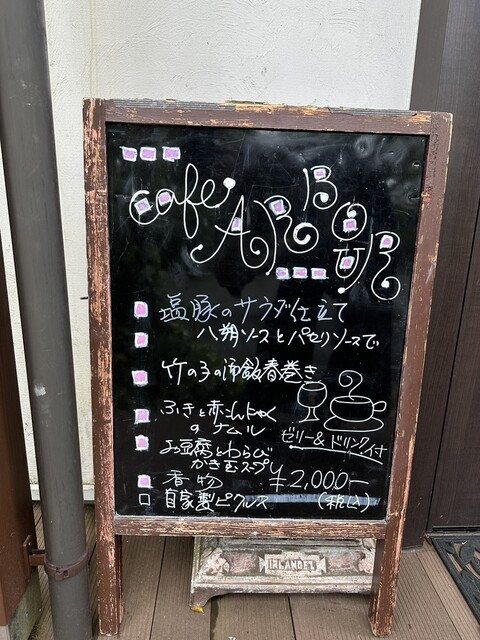 Café ARBOUR
塩豚のサラダ仕立て
八朔ソースとパセリソースで
竹の子の油飯春巻き
ふきと赤こんにゃく
のナムル
お豆腐とわらび
かき玉スープ
香物
自家製ピクルス
ゼリー&ドリンク付
¥2,000-
(税込)
IRLANDEL